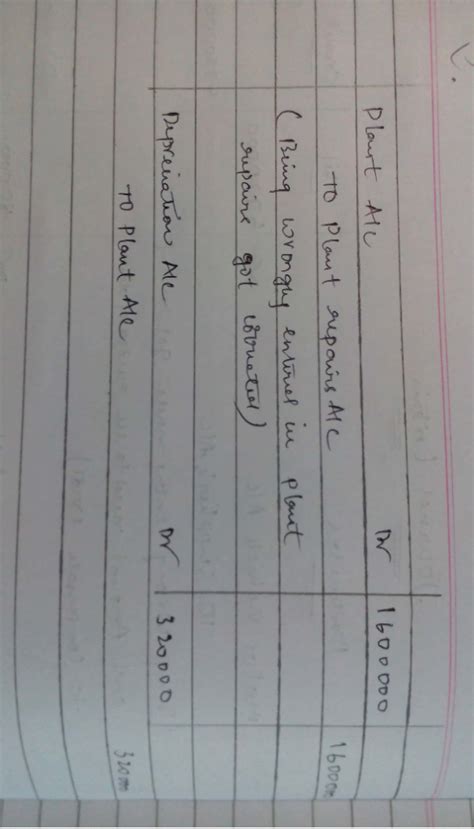 Plant A/c Dr 1600000
To Plant repairs A/c 160000
(Being wrongly entries in plant
repairs got corrected)
Depreciation A/c Dr 320000
To Plant A/c 32000